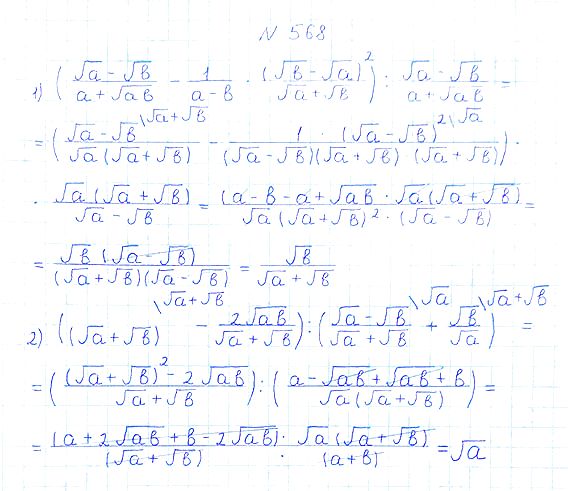 N 568
1) ( (√a − √b)/(a + √ab) − 1/(a − b) · (√b − √a)²/(√a + √b) ) : (√a − √b)/(a + √ab) =
= ( (√a − √b)\√a+√b/(√a (√a + √b)) − 1 · (√a − √b)²\√a/((√a − √b)(√a + √b) (√a + √b)) ) ·
· √a (√a + √b)/(√a − √b) = (a − b − a + √ab · √a (√a + √b)/(√a (√a + √b)² · (√a − √b)) =
= √b (√a − √b)/((√a + √b)(√a − √b)) = √b/(√a + √b)
2) ( (√a + √b)\√a+√b − 2√ab/(√a + √b) ) : ( (√a − √b)\√a/(√a + √b) + √b\√a+√b/√a ) =
= ( ((√a + √b)² − 2√ab)/(√a + √b) ) : ( (a − √ab + √ab + b)/(√a (√a + √b)) ) =
= (a + 2√ab + b − 2√ab)/(√a + √b) · √a (√a + √b)/(a + b) = √a